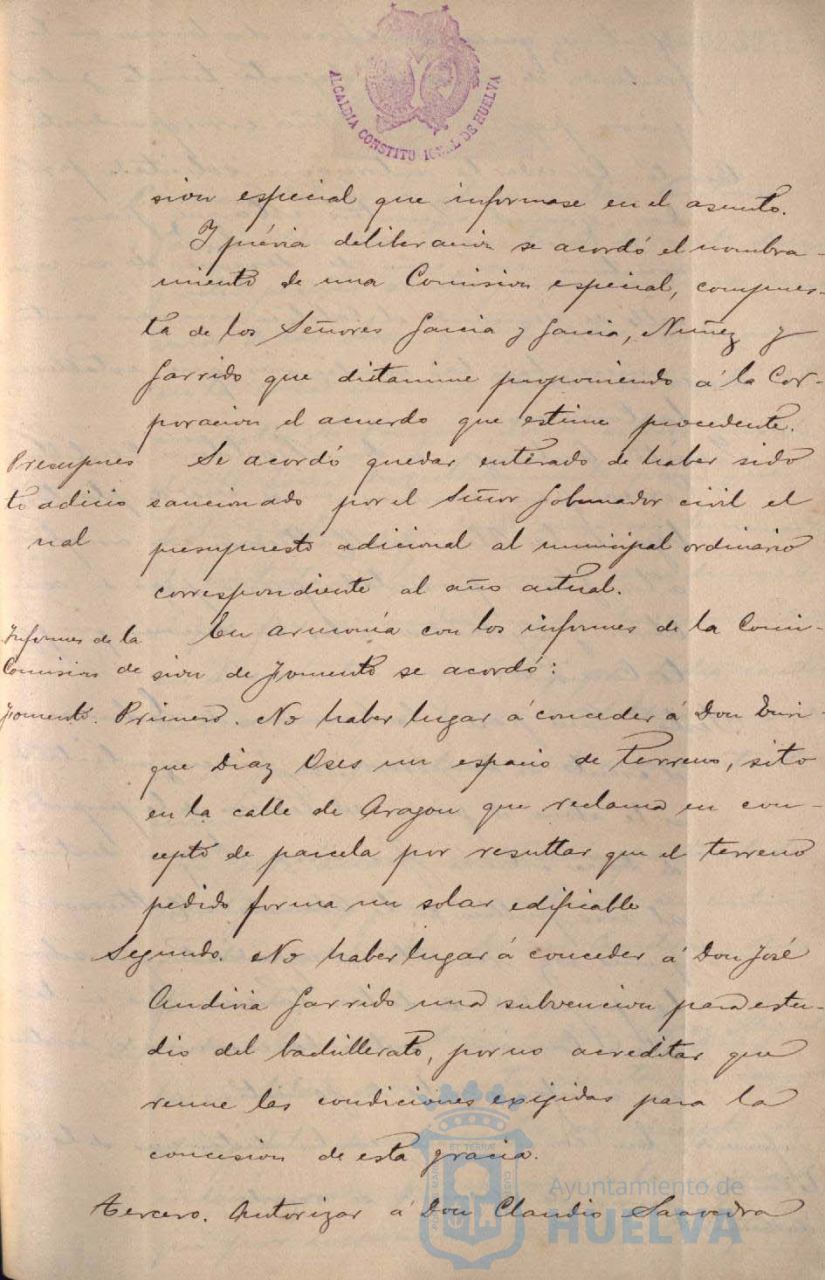 ALCALDIA CONSTITUCIONAL DE HUELVA
sion especial que informase en el asunto.
Y prévia deliberacion se acordó el nombra-
miento de una Comision especial, compues-
ta de los Señores Garcia y Garcia, Nuñez y
Garrido que dictamine proponiendo á la Cor-
poracion el acuerdo que estime procedente.
Presupues
to adicio
nal
Se acordó quedar enterado de haber sido
sancionado por el Señor Gobernador civil el
presupuesto adicional al municipal ordinario
correspondiente al año actual.
Informes de la
Comision de
Fomento.
En armonía con los informes de la Comi-
sion de Fomento se acordó:
Primero. No haber lugar á conceder á Don Enri-
que Diaz Oses un espacio de terreno, sito
en la calle de Aragon que reclama en con-
cepto de parcela por resultar que el terreno
pedido forma un solar edificable
Segundo. No haber lugar á conceder á Don José
Andivia Garrido una subvencion para estu-
dio del bachillerato, por no acreditar que
reune las condiciones exijidas para la
concesion de esta gracia.
Tercero. Autorizar á Don Claudio Saavedra
Ayuntamiento de
HUELVA